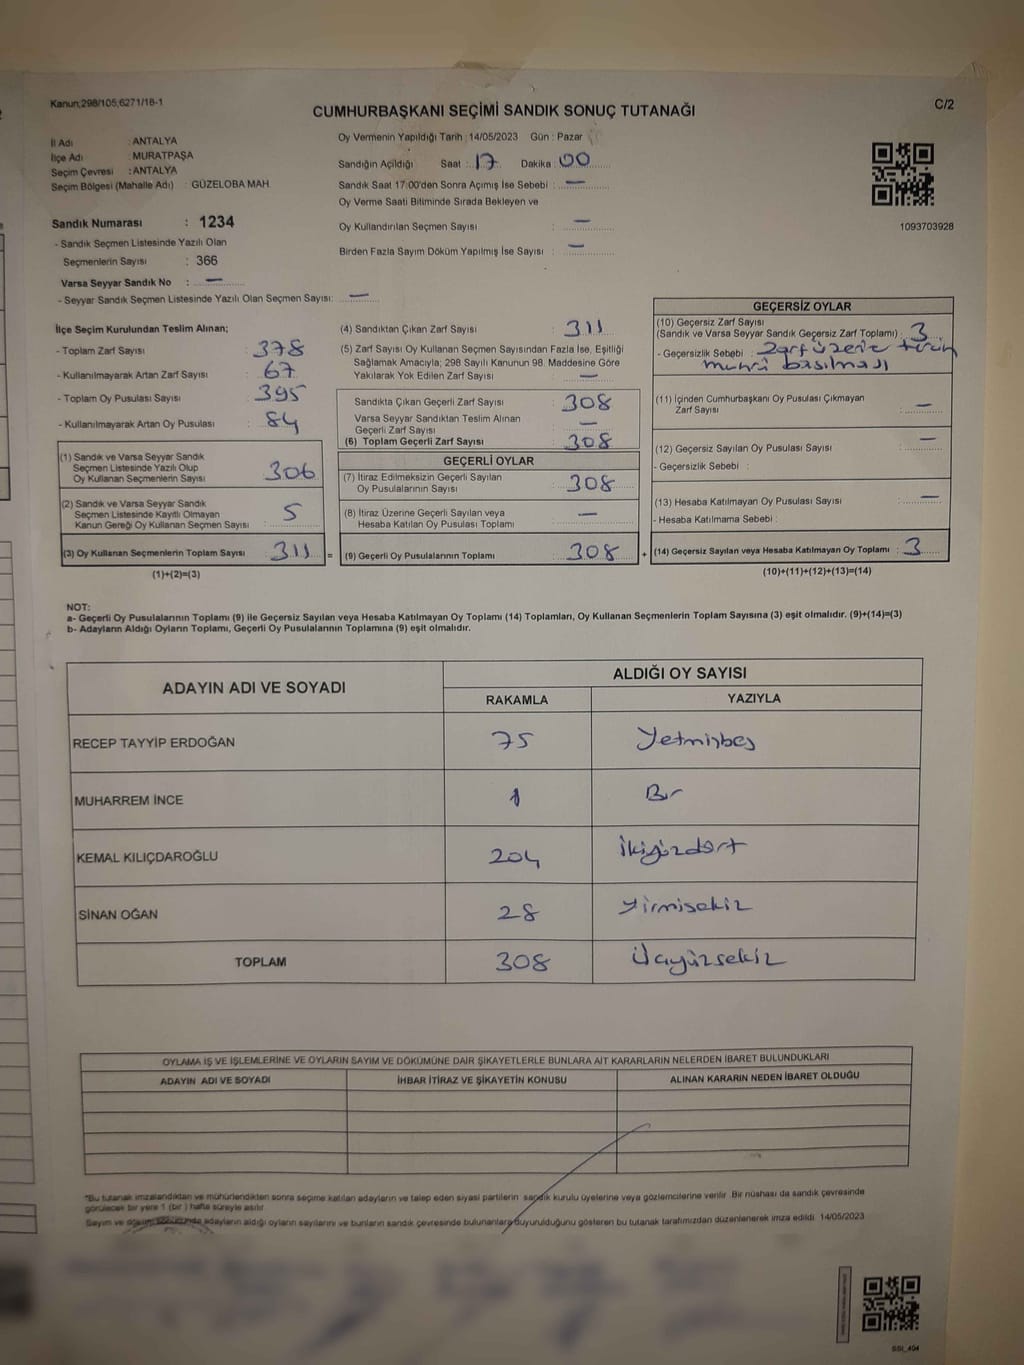 Kanun;298/105;6271/18-1
C/2
CUMHURBAŞKANI SEÇİMİ SANDIK SONUÇ TUTANAĞI
İl Adı : ANTALYA
İlçe Adı : MURATPAŞA
Seçim Çevresi : ANTALYA
Seçim Bölgesi (Mahalle Adı) : GÜZELOBA MAH.
Sandık Numarası : 1234
- Sandık Seçmen Listesinde Yazılı Olan
Seçmenlerin Sayısı : 366
Varsa Seyyar Sandık No : —
- Seyyar Sandık Seçmen Listesinde Yazılı Olan Seçmen Sayısı: —
Oy Vermenin Yapıldığı Tarih : 14/05/2023 Gün : Pazar
Sandığın Açıldığı Saat : 17 Dakika : 00
Sandık Saat 17:00'den Sonra Açımış İse Sebebi : —
Oy Verme Saati Bitiminde Sırada Bekleyen ve
Oy Kullandırılan Seçmen Sayısı : —
Birden Fazla Sayım Döküm Yapılmış İse Sayısı : —
1093703928
İlçe Seçim Kurulundan Teslim Alınan;
- Toplam Zarf Sayısı : 378
- Kullanılmayarak Artan Zarf Sayısı : 67
- Toplam Oy Pusulası Sayısı : 395
- Kullanılmayarak Artan Oy Pusulası : 84
(1) Sandık ve Varsa Seyyar Sandık
Seçmen Listesinde Yazılı Olup
Oy Kullanan Seçmenlerin Sayısı : 306
(2) Sandık ve Varsa Seyyar Sandık
Seçmen Listesinde Kayıtlı Olmayan
Kanun Gereği Oy Kullanan Seçmen Sayısı : 5
(3) Oy Kullanan Seçmenlerin Toplam Sayısı : 311 =
(1)+(2)=(3)
(4) Sandıktan Çıkan Zarf Sayısı : 311
(5) Zarf Sayısı Oy Kullanan Seçmen Sayısından Fazla İse, Eşitliği
Sağlamak Amacıyla; 298 Sayılı Kanunun 98. Maddesine Göre
Yakılarak Yok Edilen Zarf Sayısı : —
Sandıkta Çıkan Geçerli Zarf Sayısı : 308
Varsa Seyyar Sandıktan Teslim Alınan
Geçerli Zarf Sayısı : —
(6) Toplam Geçerli Zarf Sayısı : 308
GEÇERLİ OYLAR
(7) İtiraz Edilmeksizin Geçerli Sayılan
Oy Pusulalarının Sayısı : 308
(8) İtiraz Üzerine Geçerli Sayılan veya
Hesaba Katılan Oy Pusulası Toplamı : —
(9) Geçerli Oy Pusulalarının Toplamı : 308 +
GEÇERSİZ OYLAR
(10) Geçersiz Zarf Sayısı
(Sandık ve Varsa Seyyar Sandık Geçersiz Zarf Toplamı) : 3
- Geçersizlik Sebebi : Zarf üzerine tercih
mührü basılması
(11) İçinden Cumhurbaşkanı Oy Pusulası Çıkmayan
Zarf Sayısı : —
(12) Geçersiz Sayılan Oy Pusulası Sayısı : —
- Geçersizlik Sebebi :
(13) Hesaba Katılmayan Oy Pusulası Sayısı : —
- Hesaba Katılmama Sebebi :
(14) Geçersiz Sayılan veya Hesaba Katılmayan Oy Toplamı : 3
(10)+(11)+(12)+(13)=(14)
NOT:
a- Geçerli Oy Pusulalarının Toplamı (9) ile Geçersiz Sayılan veya Hesaba Katılmayan Oy Toplamı (14) Toplamları, Oy Kullanan Seçmenlerin Toplam Sayısına (3) eşit olmalıdır. (9)+(14)=(3)
b- Adayların Aldığı Oyların Toplamı, Geçerli Oy Pusulalarının Toplamına (9) eşit olmalıdır.
ADAYIN ADI VE SOYADI
ALDIĞI OY SAYISI
RAKAMLA YAZIYLA
RECEP TAYYİP ERDOĞAN 75 Yetmişbeş
MUHARREM İNCE 1 Bir
KEMAL KILIÇDAROĞLU 204 İkiyüzdört
SİNAN OĞAN 28 Yirmisekiz
TOPLAM 308 Üçyüzsekiz
OYLAMA İŞ VE İŞLEMLERİNE VE OYLARIN SAYIM VE DÖKÜMÜNE DAİR ŞİKAYETLERLE BUNLARA AİT KARARLARIN NELERDEN İBARET BULUNDUKLARI
ADAYIN ADI VE SOYADI İHBAR İTİRAZ VE ŞİKAYETİN KONUSU ALINAN KARARIN NEDEN İBARET OLDUĞU
*Bu tutanak imzalandıktan ve mühürlendikten sonra seçime katılan adayların ve talep eden siyasi partilerin sandık kurulu üyelerine veya gözlemcilerine verilir. Bir nüshası da sandık çevresinde
görülecek bir yere 1 (bir ) hafta süreyle asılır.
Sayım ve döküm sonucunda adayların aldığı oyların sayılarını ve bunların sandık çevresinde bulunanlara duyurulduğunu gösteren bu tutanak tarafımızdan düzenlenerek imza edildi. 14/05/2023